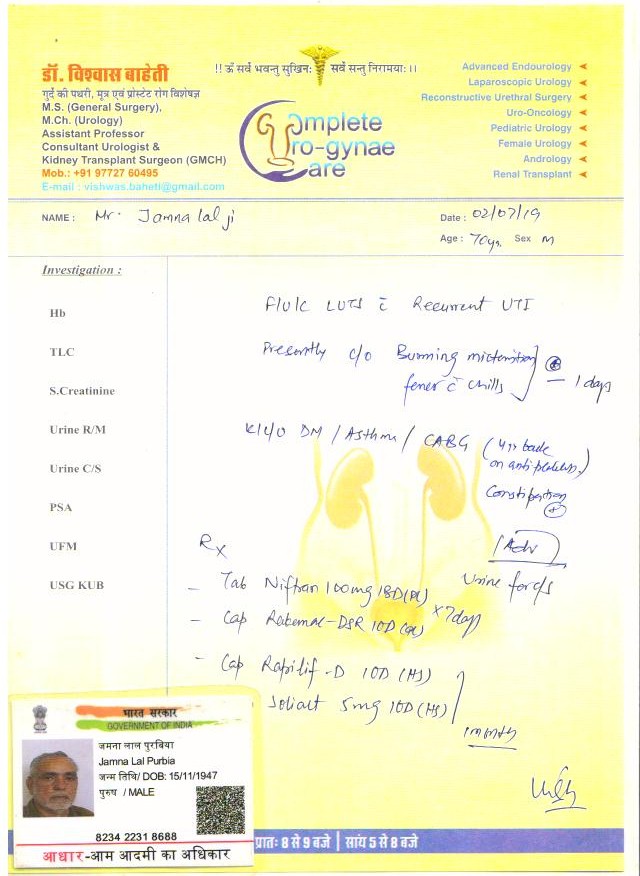 !! ॐ सर्वे भवन्तु सुखिनः सर्वे सन्तु निरामयः।।
डॉ. विश्वास बाहेती
गुर्दे की पथरी, मूत्र एवं प्रोस्टेट रोग विशेषज्ञ
M.S. (General Surgery),
M.Ch. (Urology)
Assistant Professor
Consultant Urologist &
Kidney Transplant Surgeon (GMCH)
Mob.: +91 97727 60495
E-mail : vishwas.baheti@gmail.com
Complete
Uro-gynae
Care
Advanced Endourology
Laparoscopic Urology
Reconstructive Urethral Surgery
Uro-Oncology
Pediatric Urology
Female Urology
Andrology
Renal Transplant
NAME : Mr. Jamna lal ji
Date : 02/07/19
Age : 70yrs. Sex M
Investigation :
Hb
TLC
S.Creatinine
Urine R/M
Urine C/S
PSA
UFM
USG KUB
F/U/C LUTS c̄ Recurrent UTI
Presently c/o Burning micturition
fever c̄ chills
1 days
K/C/O DM / Asthma / CABG (4 yr back
on antiplatelets)
Constipation
(+)
Rx
Adv
Urine for c/s
- Tab Niftran 100mg
- Cap -DSR 1OD x 7days
- Cap Rapilif-D 1OD (HS)
5mg 1OD (HS)
1 month
भारत सरकार
GOVERNMENT OF INDIA
जमना लाल पुरबिया
Jamna Lal Purbia
जन्म तिथि/ DOB: 15/11/1947
पुरुष / MALE
8234 2231 8688
आधार-आम आदमी का अधिकार
प्रातः 8 से 9 बजे | सांय 5 से 8 बजे